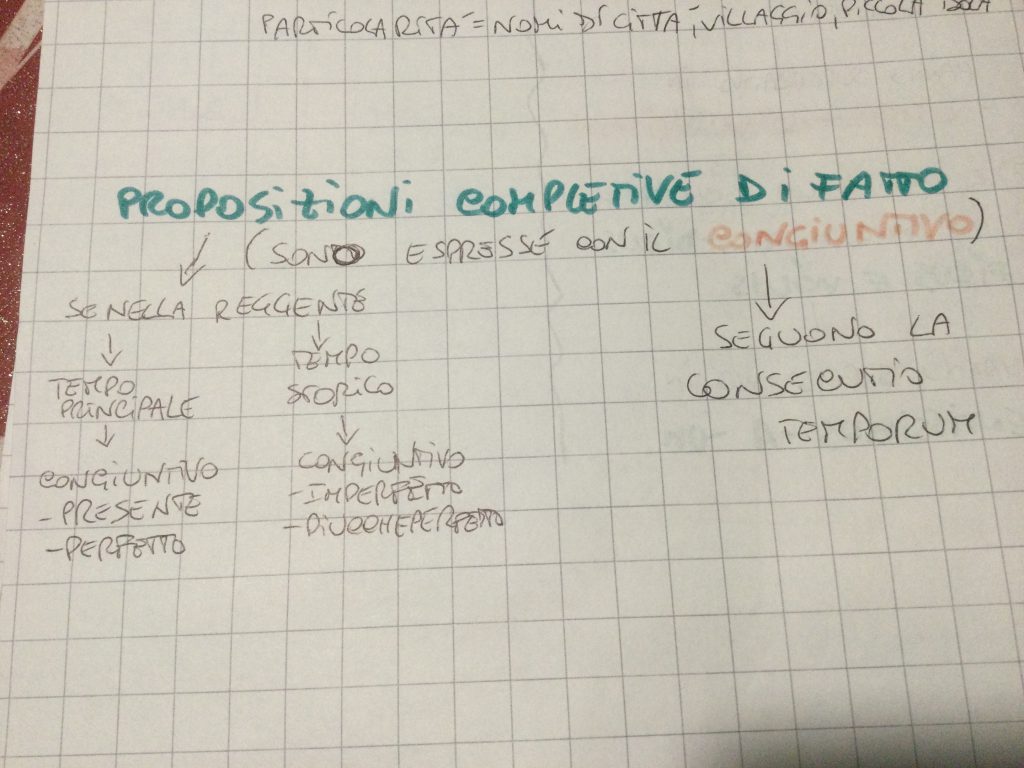 PARTICOLARITÀ = NOMI DI CITTÀ, VILLAGGIO, PICCOLA ISOLA
PROPOSIZIONI COMPLETIVE DI FATTO
(SONO ESPRESSE CON IL CONGIUNTIVO)
SE NELLA REGGENTE
TEMPO
PRINCIPALE
CONGIUNTIVO
- PRESENTE
- PERFETTO
TEMPO
STORICO
CONGIUNTIVO
- IMPERFETTO
- PIUCCHEPERFETTO
SEGUONO LA
CONSECUTIO
TEMPORUM